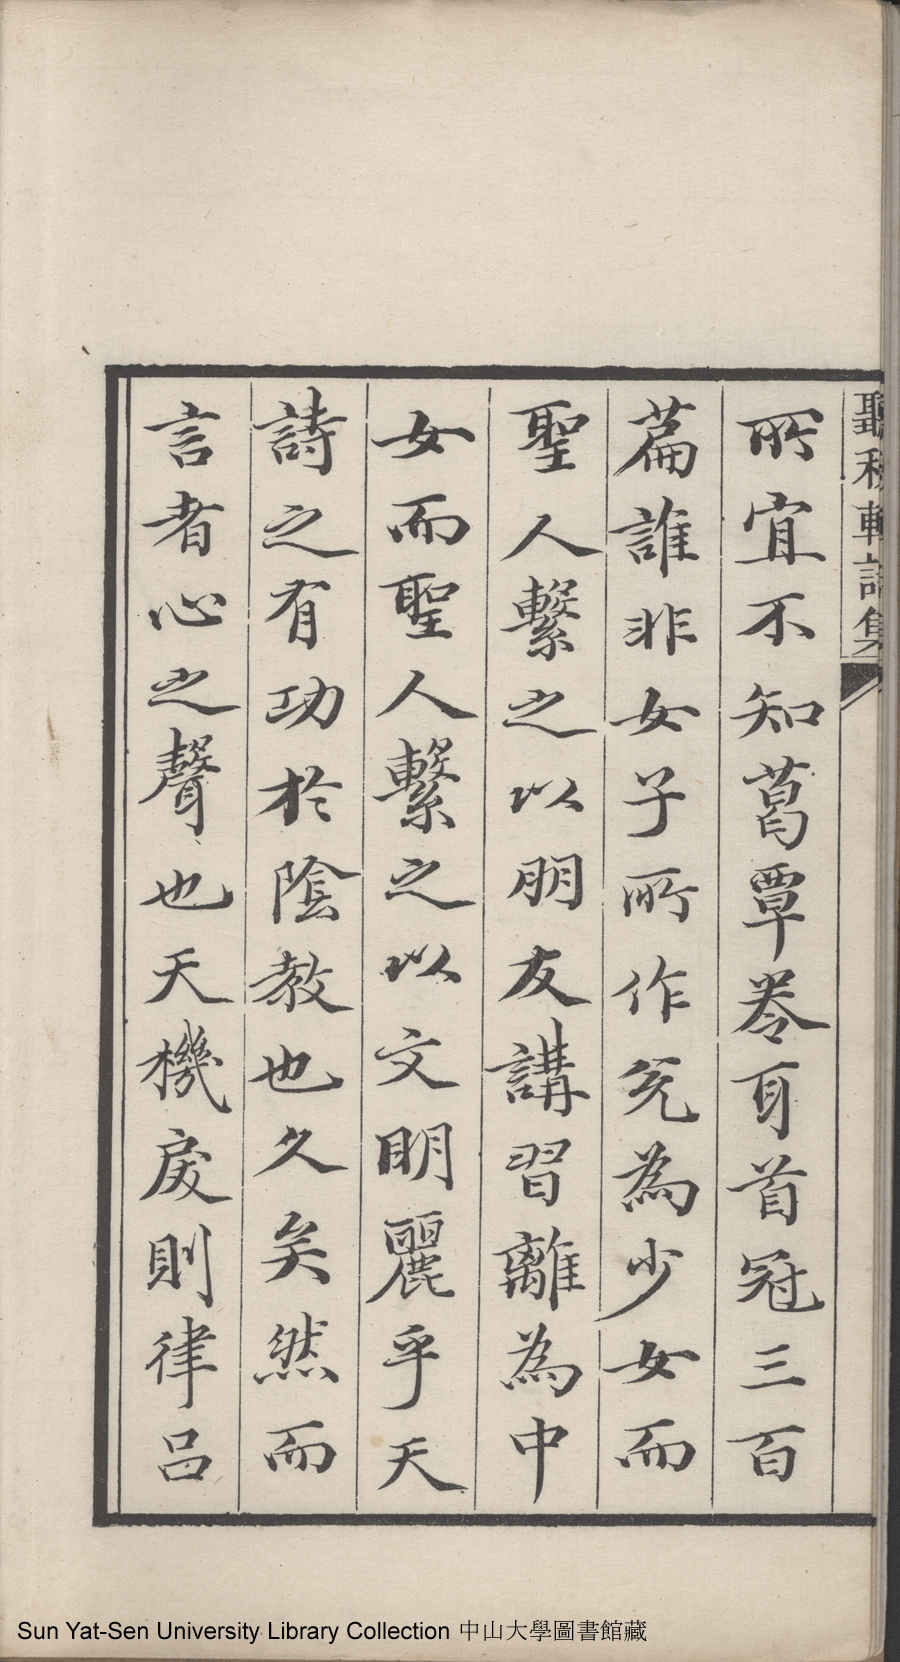 聽秋軒詩集
所宜不知葛覃卷耳首冠三百
篇誰非女子所作兌為少女而
聖人繫之以朋友講習離為中
女而聖人繫之以文明麗乎天
詩之有功於陰教也久矣然而
言者心之聲也天機戾則律呂
Sun Yat-Sen University Library Collection 中山大學圖書館藏